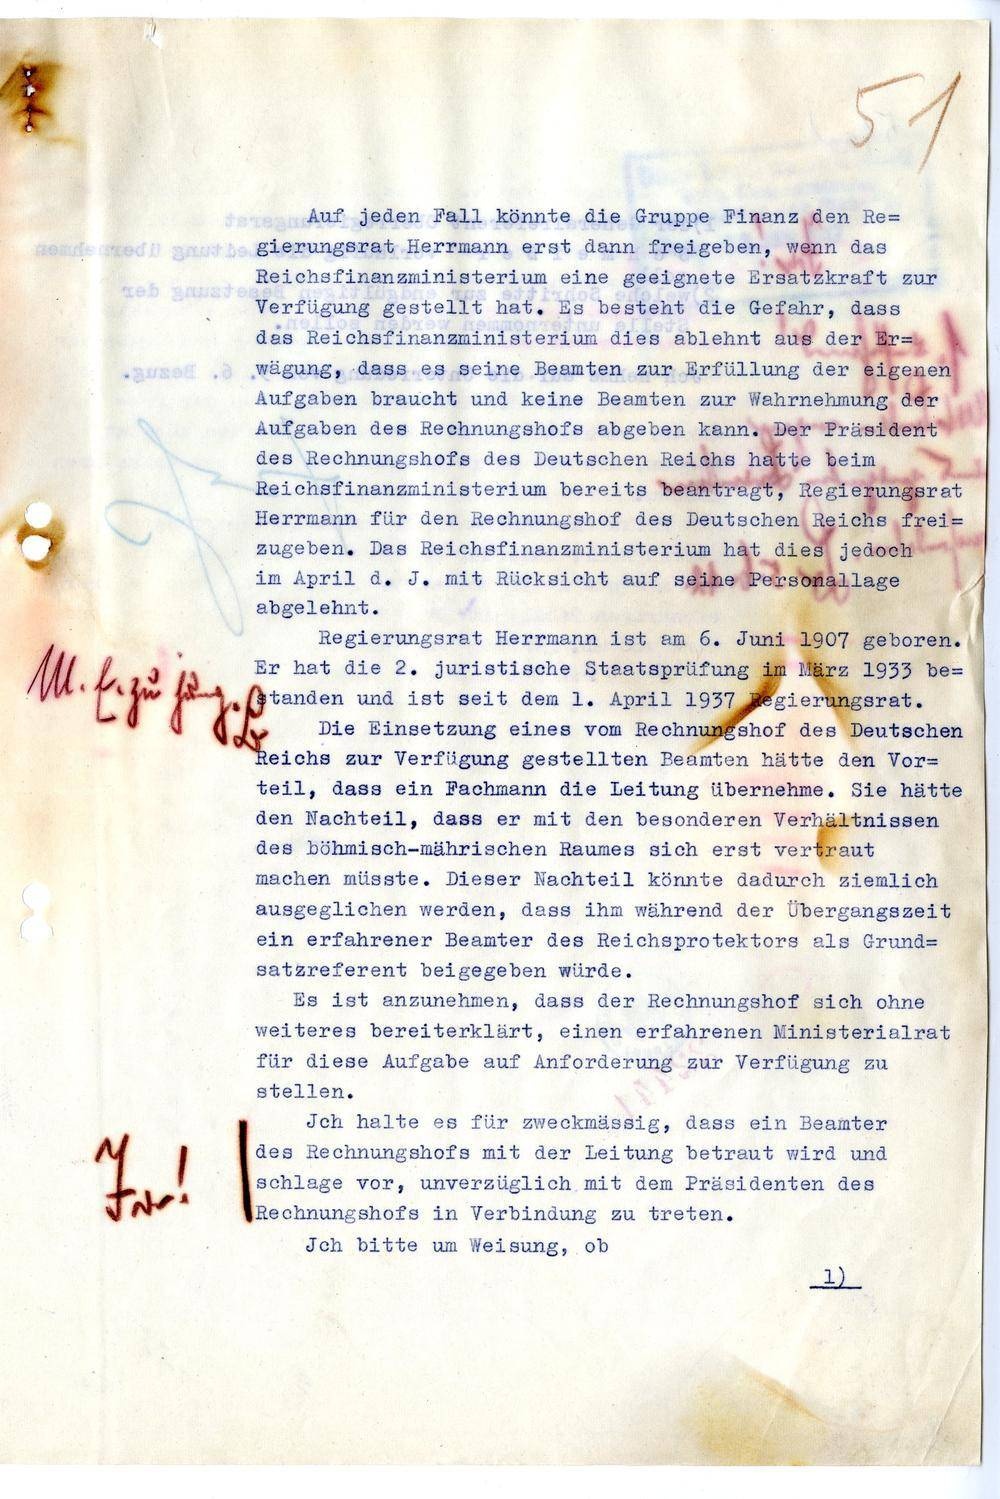 51
Auf jeden Fall könnte die Gruppe Finanz den Re=
gierungsrat Herrmann erst dann freigeben, wenn das
Reichsfinanzministerium eine geeignete Ersatzkraft zur
Verfügung gestellt hat. Es besteht die Gefahr, dass
das Reichsfinanzministerium dies ablehnt aus der Er=
wägung, dass es seine Beamten zur Erfüllung der eigenen
Aufgaben braucht und keine Beamten zur Wahrnehmung der
Aufgaben des Rechnungshofs abgeben kann. Der Präsident
des Rechnungshofs des Deutschen Reichs hatte beim
Reichsfinanzministerium bereits beantragt, Regierungsrat
Herrmann für den Rechnungshof des Deutschen Reichs frei=
zugeben. Das Reichsfinanzministerium hat dies jedoch
im April d. J. mit Rücksicht auf seine Personallage
abgelehnt.
Regierungsrat Herrmann ist am 6. Juni 1907 geboren.
Er hat die 2. juristische Staatsprüfung im März 1933 be=
standen und ist seit dem 1. April 1937 Regierungsrat.
M. E. zu jung.
Die Einsetzung eines vom Rechnungshof des Deutschen
Reichs zur Verfügung gestellten Beamten hätte den Vor=
teil, dass ein Fachmann die Leitung übernehme. Sie hätte
den Nachteil, dass er mit den besonderen Verhältnissen
des böhmisch-mährischen Raumes sich erst vertraut
machen müsste. Dieser Nachteil könnte dadurch ziemlich
ausgeglichen werden, dass ihm während der Übergangszeit
ein erfahrener Beamter des Reichsprotektors als Grund=
satzreferent beigegeben würde.
Es ist anzunehmen, dass der Rechnungshof sich ohne
weiteres bereiterklärt, einen erfahrenen Ministerialrat
für diese Aufgabe auf Anforderung zur Verfügung zu
stellen.
Jch halte es für zweckmässig, dass ein Beamter
des Rechnungshofs mit der Leitung betraut wird und
schlage vor, unverzüglich mit dem Präsidenten des
Rechnungshofs in Verbindung zu treten.
Jch bitte um Weisung, ob
1)